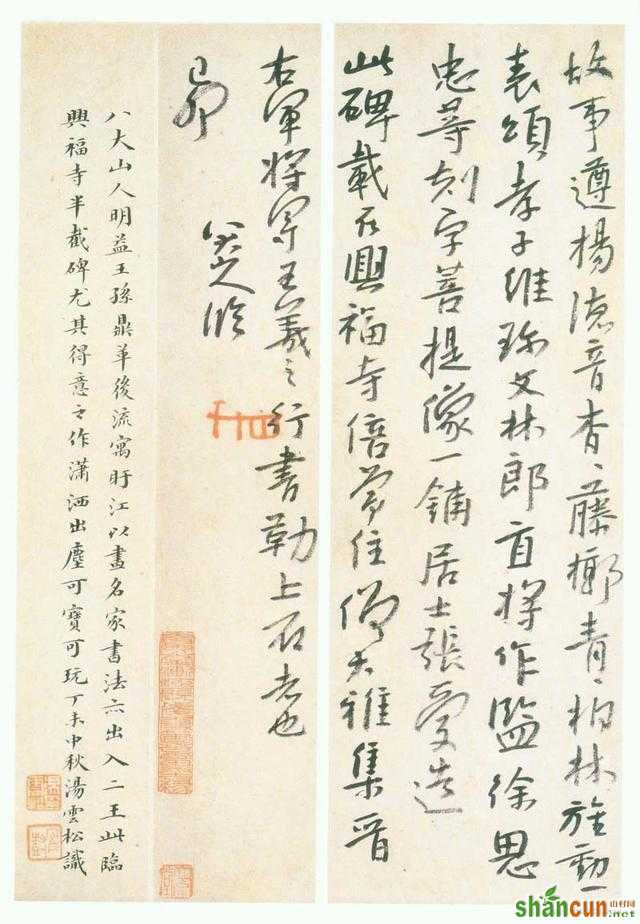 故事遵揚德音杳〻藤槨青〻柏林旌勳一
表頌孝子維珎文林郎直將作監徐思
忠等刻字菩提像一鋪居士張愛造
此碑載在興福寺倍常住僧大雅集晉
右軍將軍王羲之行書勒上石者也
己卯
八大山人臨
八大山人明益王孫鼎革後流寓盱江以畫名家書法亦出入二王此臨
興福寺半截碑尤其得意之作瀟洒出塵可寶可玩丁未中秋湯雲松識
shancun
山村网
.net